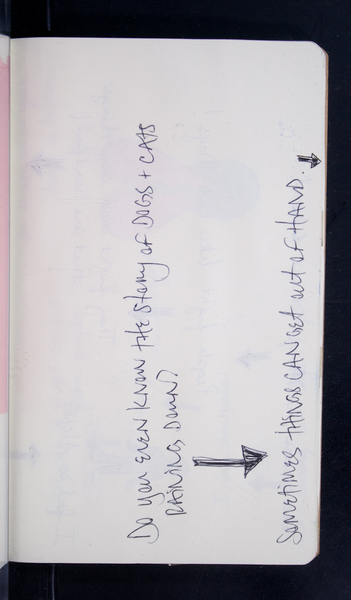 Do you EVEN KNOW tHE StORy of DOGS + CAtS
RAINING DOWN?
Sometimes tHINGS CAN GEt out of HAND.